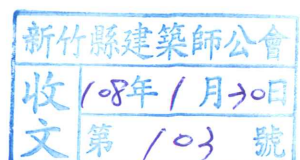 新竹縣建築師公會
收文
108年1月30日
第 103 號